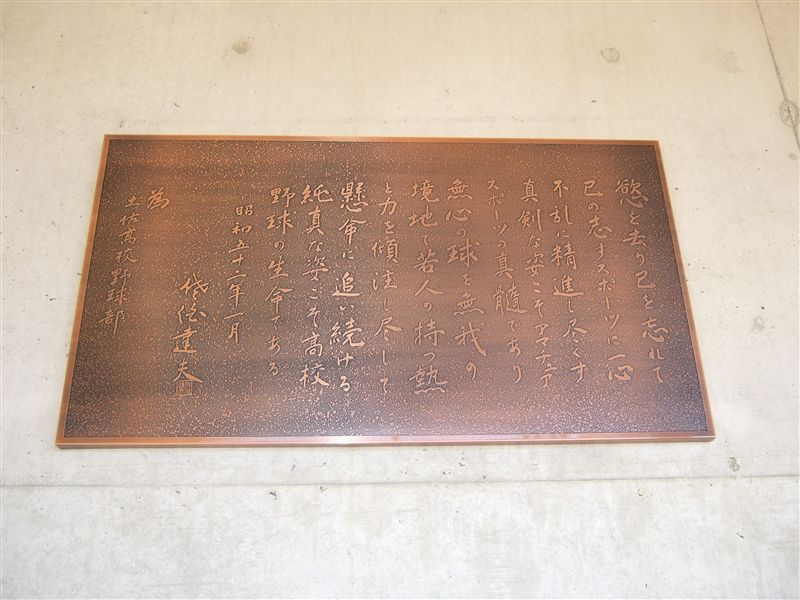 慾を去り己を忘れて
己の志すスポーツに一心
不乱に精進し尽くす
真剣な姿こそアマチュア
スポーツの真髄であり
無心の球を無我の
境地で若人の持つ熱
と力を傾注し尽して
懸命に追い続ける
純真な姿こそ高校
野球の生命である
昭和五十二年一月
達夫
為
土佐高校野球部